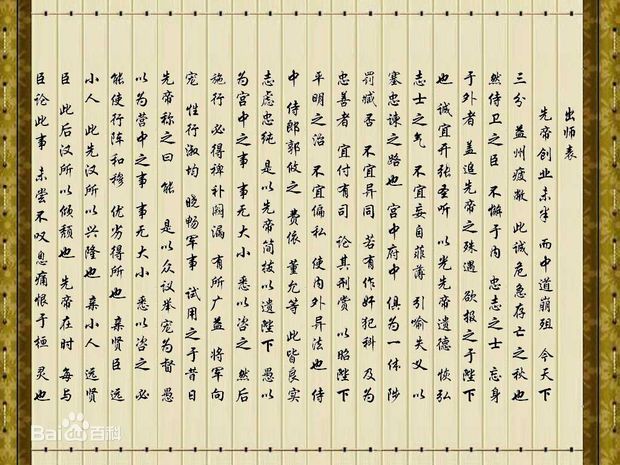 出师表
先帝创业未半 而中道崩殂 今天下
三分 益州疲敝 此诚危急存亡之秋也
然侍卫之臣 不懈于内 忠志之士 忘身
于外者 盖追先帝之殊遇 欲报之于陛下
也 诚宜开张圣听 以光先帝遗德 恢弘
志士之气 不宜妄自菲薄 引喻失义 以
塞忠谏之路也 宫中府中 俱为一体 陟
罚臧否 不宜异同 若有作奸犯科 及为
忠善者 宜付有司 论其刑赏 以昭陛下
平明之治 不宜偏私 使内外异法也 侍
中 侍郎郭攸之 费依 董允等 此皆良实
志虑忠纯 是以先帝简拔以遗陛下 愚以
为宫中之事 事无大小 悉以咨之 然后
施行 必得裨补阙漏 有所广益 将军向
宠 性行淑均 晓畅军事 试用之于昔日
先帝称之曰 能 是以众议举宠为督 愚
以为营中之事 事无大小 悉以咨之 必
能使行阵和穆 优劣得所也 亲贤臣 远
小人 此先汉所以兴隆也 亲小人 远贤
臣 此后汉所以倾颓也 先帝在时 每与
臣论此事 未尝不叹息痛恨于桓 灵也
Bai百科